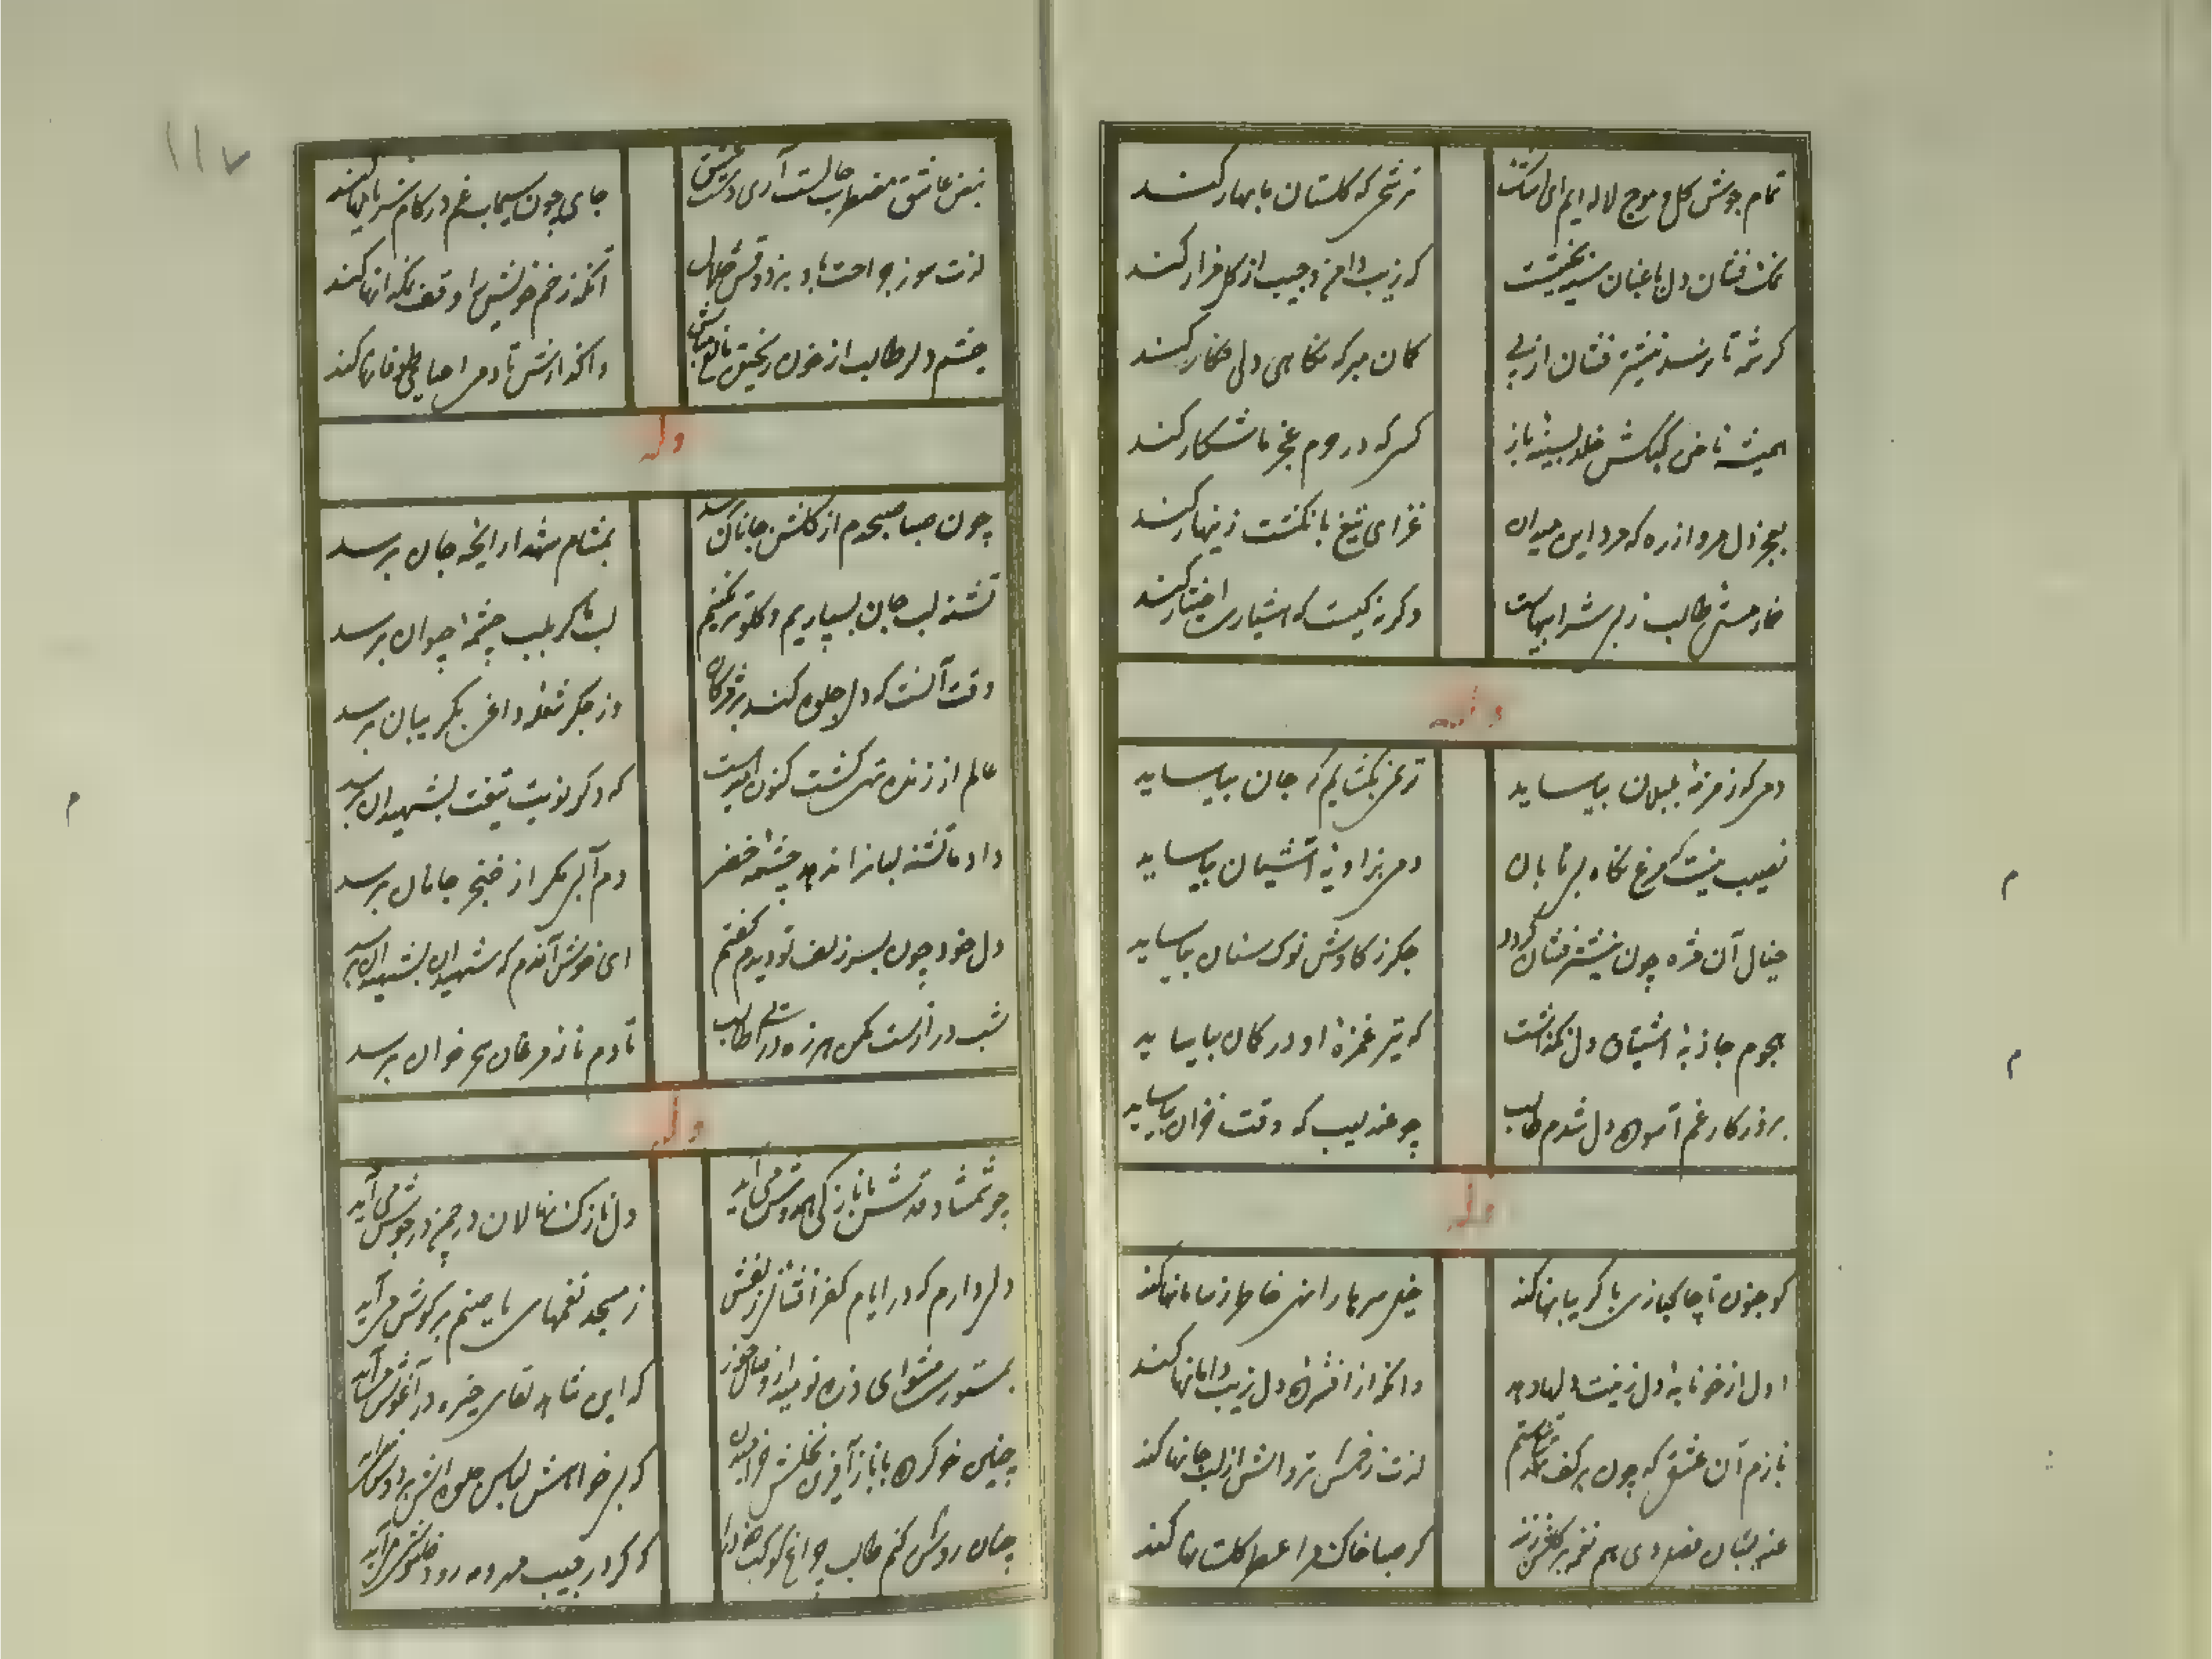 تمام جوش گل و موج لاله ایم ای اشک
ترشحی که گلستان ما بهار کند
نمک فشان دل باغبان
که زیب دامن و جیب از گل هزار کند
کرشمه تا رسد نیشتر فشان از پی
گمان مبر که نگاهی دلی فکار کند
همیشه ناخن کبکش خلد بسینه باز
کسی که در حرم عجز ما شکار کند
بعجز دل مرو از ره که مرد این میدان
غزای تیغ بانگشت زینهار کند
خمار مستی طالب ز بی شرابیهاست
وگرنه کیست که هشیاری اختیار کند
وله
دمی که زمزمهٔ بلبلان بیاساید
ترنمی بگشایم که جان بیاساید
نصیب نیست که مرغ نگاه بی تابان
دمی بزاویهٔ آشیان بیاساید
خیال آن مژه چون نیشتر فشان گردد
جگر ز کاوش نوک سنان بیاساید
هجوم جاذبهٔ اشتیاق دل نگذاشت
که تیر غمزهٔ او در کمان بیاساید
بروزگار غم آسوده دل شدم طالب
چو عندلیب که وقت خزان بیاساید
وله
کو جنون تا چاکبازی با گریبانها کند
خیل سرما را تهی خاطر ز سامانها کند
اول از خونابهٔ دل زینت دلها دهد
وانگه از افشردهٔ دل زیب دامانها کند
نازم آن عشقی که چون بر کف نهد
لذت زخمش تراوش از لب جانها کند
عندلیبان فصل دی هم نغمه بر گلشن زنند
گر صبا خاک مرا عطر گلستانها کند
نبض عاشق مضطرب حالست آری دست عشق
جای چون سیماب غم در کام شریانها کند
لذت سوز جراحت باد بر ذوقش حلال
آنکه زخم خویش را وقف نمکدانها کند
چشم دلم طالب از خون ریختن مانع مباش
واگذارش تا دمی احیای طوفانها کند
وله
چون صبا صبحدم از گلشن جانان برسد
بمشام شهدا رایحه جان برسد
تشنه لب جان بسپاریم و گلو تر نکنیم
لب ما گر بلب چشمهٔ حیوان برسد
وقت آنست که دل جلوه کند بر مژگان
وز جگر شعلهٔ داغی بگریبان برسد
عالم از زنده تهی گشت کنون امید است
که دگر نوبت تیغت بشهیدان برسد
داد ما تشنه لبان را ندهد چشمهٔ خضر
دم آبی مگر از خنجر جانان برسد
دل خود چون بسر زلف تو دیدم گفتم
ای خوش آندم که شهیدان بشهیدان برسد
شب درازست مکن هرزه درائی طالب
تا دم نالهٔ مرغان سحر خوان برسد
وله
چو شمشاد قدش با ناز کی همدوش می آید
دل نازک نهالان در چمن در جوش می آید
دلی دارم که در ایام کفر افشانی زلفش
ز مسجد نغمهای یا صنم بر گوش می آید
بمستوری مشو ای ذره نومید از وصال خور
که این شاهد لقای خیره در آغوش می آید
چنین خو کرده با ناز آفرینی نخلش
که بی خواهش لباس جلوه اش بر دوش می آید
چسان روشن کنم طالب چراغ کوکب خود را
که گر در جیب مه دمد رود خاموش می آید
۱۱۷